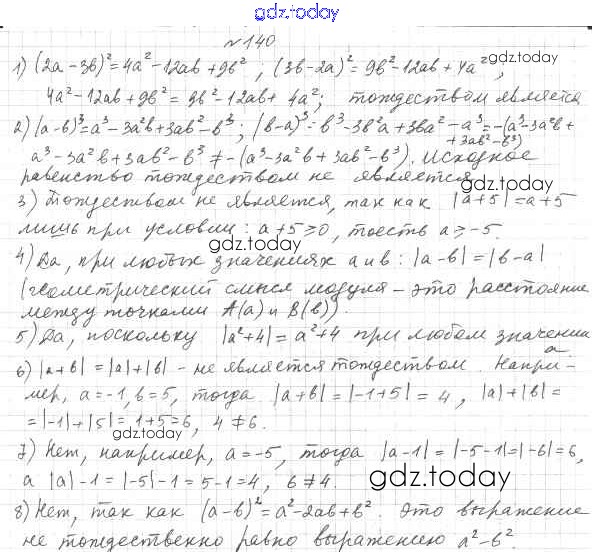 gdz.today
№ 140
1) (2a - 3b)² = 4a² - 12ab + 9b² ; (3b - 2a)² = 9b² - 12ab + 4a² ,
gdz.today
4a² - 12ab + 9b² = 9b² - 12ab + 4a² ; тождеством является
2) (a - b)³ = a³ - 3a²b + 3ab² - b³ ; (b - a)³ = b³ - 3b²a + 3ba² - a³ = -(a³ - 3a²b +
+ 3ab² - b³)
a³ - 3a²b + 3ab² - b³ ≠ -(a³ - 3a²b + 3ab² - b³). Исходное
равенство тождеством не является.
gdz.today
3) Тождеством не является, так как |a+5| = a+5
лишь при условии: a+5 ≥ 0, тоесть a ≥ -5.
gdz.today
4) Да, при любых значениях a и b : |a - b| = |b - a|
(геометрический смысл модуля - это расстояние
между точками A(a) и B(b)).
5) Да, поскольку |a²+4| = a²+4 при любом значении
a
6) |a+b| = |a|+|b| - не является тождеством. Напри-
мер, a = -1, b = 5, тогда |a+b| = |-1+5| = 4 , |a|+|b| =
= |-1|+|5| = 1+5 = 6, 4 ≠ 6.
gdz.today
7) Нет, например, a = -5, тогда |a-1| = |-5-1| = |-6| = 6,
а |a| - 1 = |-5| - 1 = 5 - 1 = 4, 6 ≠ 4.
gdz.today
8) Нет, так как (a - b)² = a² - 2ab + b². Это выражение
не тождественно равно выражению a² - b²